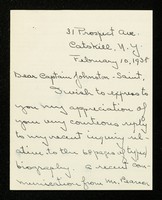 31 Prospect Ave.
Catskill, N.Y.
February 10, 1938
Dear Captain Johnston-Saint,
I wish to express to
you my appreciation of
your very courteous reply
to my recent inquiry rel-
ative to the
biography. A recent com-
munication from Mr. Pearson